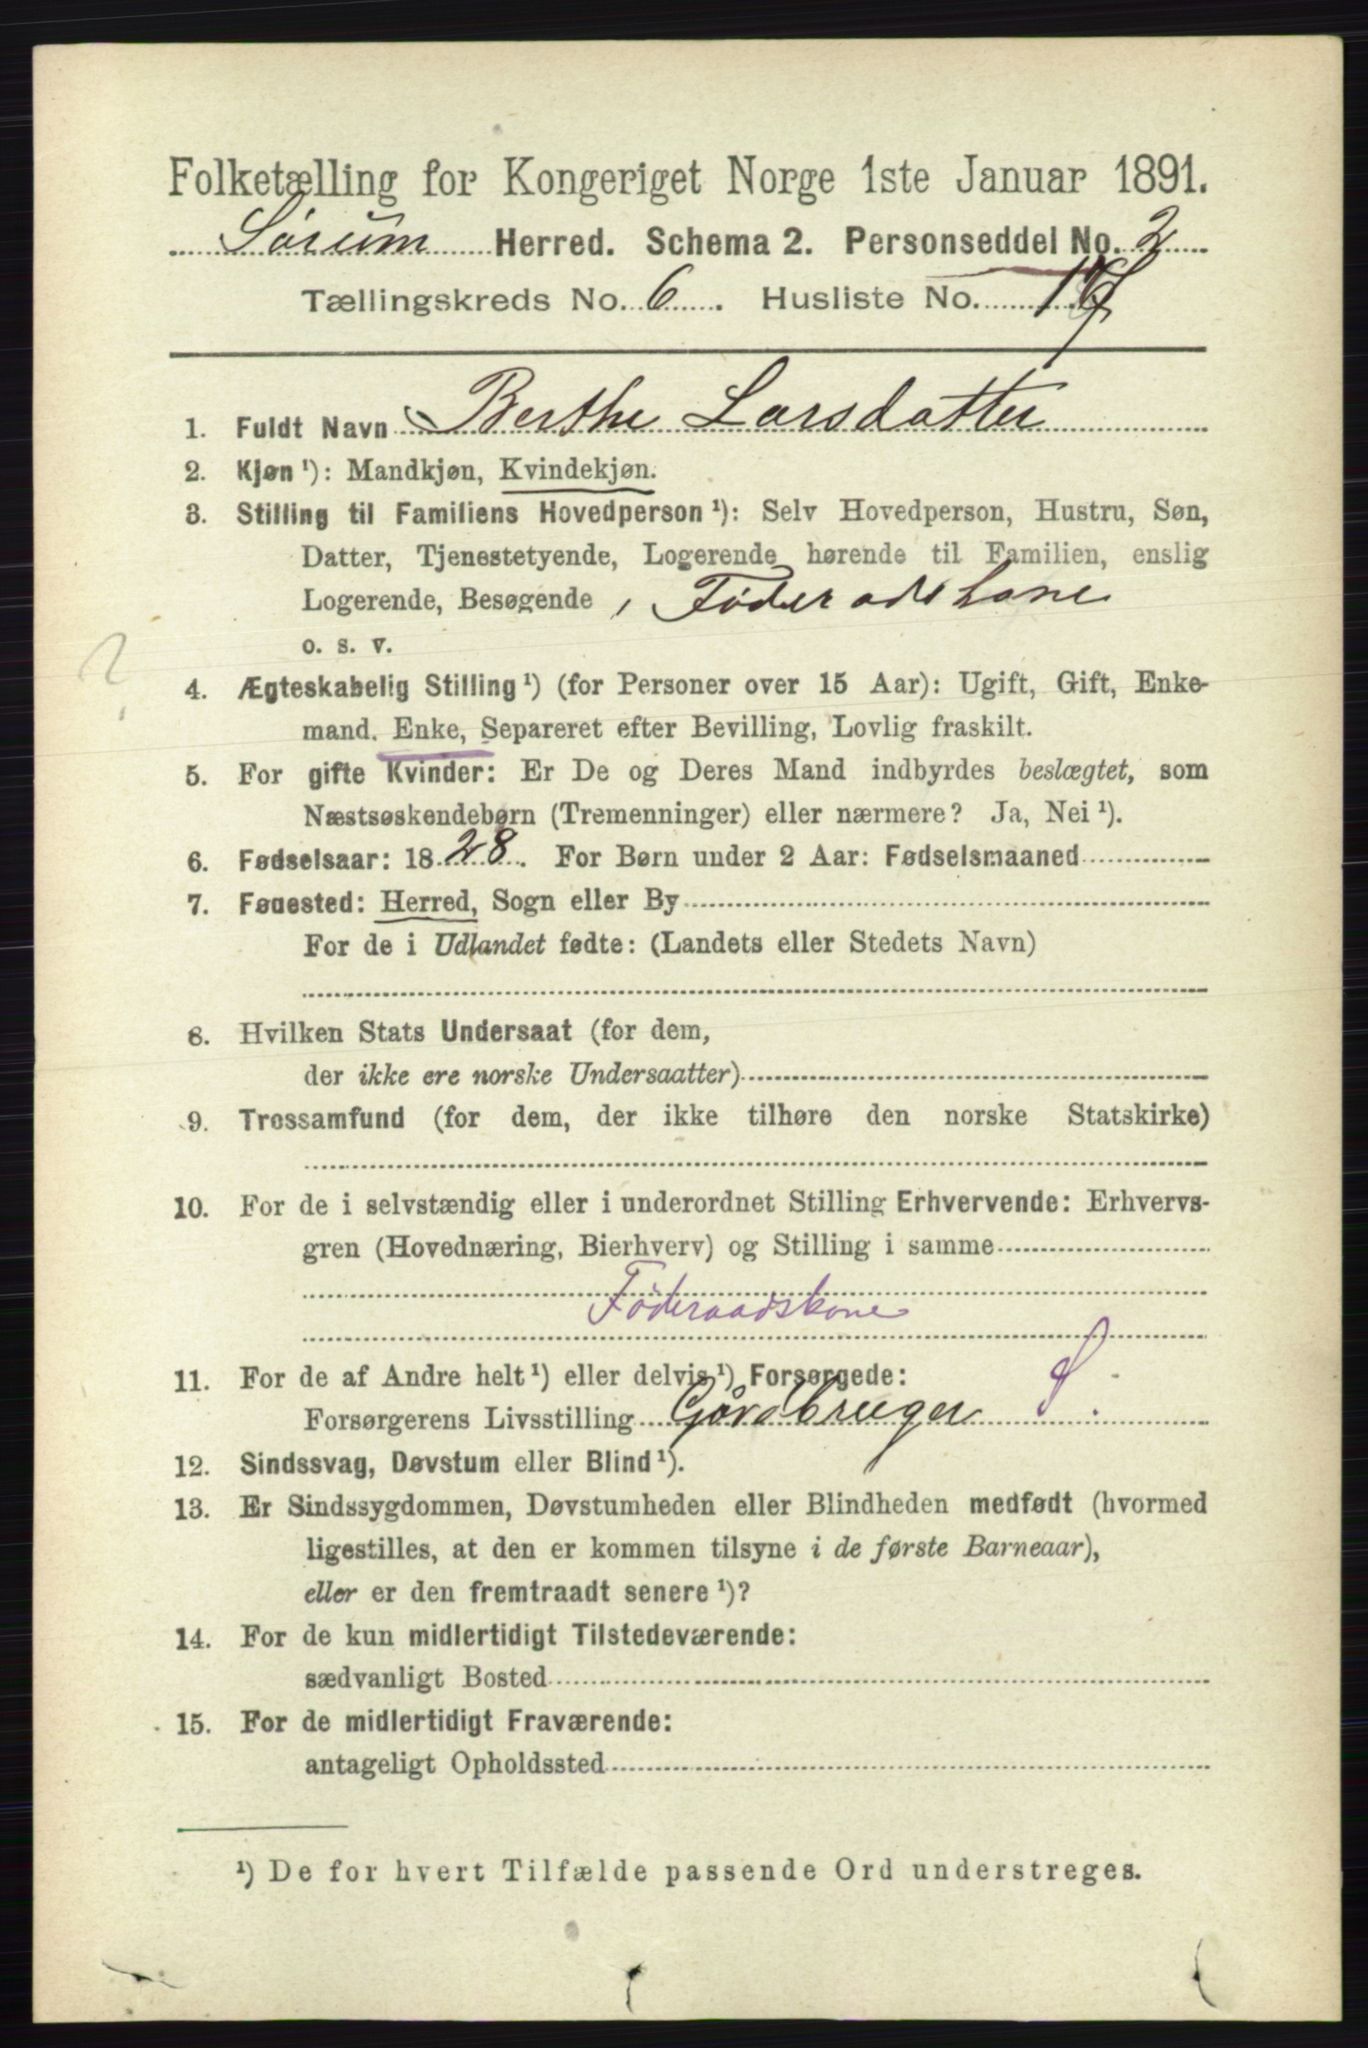 Folketælling for Kongeriget Norge 1ste Januar 1891.
Sørum Herred. Schema 2. Personseddel No. 2
Tællingskreds No. 6. Husliste No.
1. Fuldt Navn Berthe Larsdatter
2. Kjøn ¹): Mandkjøn, Kvindekjøn.
3. Stilling til Familiens Hovedperson ¹): Selv Hovedperson, Hustru, Søn,
Datter, Tjenestetyende, Logerende hørende til Familien, enslig
Logerende, Besøgende, Føderadskone
o. s. v.
4. Ægteskabelig Stilling ¹) (for Personer over 15 Aar): Ugift, Gift, Enke-
mand, Enke, Separeret efter Bevilling, Lovlig fraskilt.
5. For gifte Kvinder: Er De og Deres Mand indbyrdes beslægtet, som
Næstsøskendebørn (Tremenninger) eller nærmere? Ja, Nei ¹).
6. Fødselsaar: 1828. For Børn under 2 Aar: Fødselsmaaned
7. Fødested: Herred, Sogn eller By
For de i Udlandet fødte: (Landets eller Stedets Navn)
8. Hvilken Stats Undersaat (for dem,
der ikke ere norske Undersaatter)
9. Trossamfund (for dem, der ikke tilhøre den norske Statskirke)
10. For de i selvstændig eller i underordnet Stilling Erhvervende: Erhvervs-
gren (Hovednæring, Bierhverv) og Stilling i samme
Føderaadskone
11. For de af Andre helt ¹) eller delvis ¹) Forsørgede:
Forsørgerens Livsstilling Gårdbruger S.
12. Sindssvag, Døvstum eller Blind ¹).
13. Er Sindssygdommen, Døvstumheden eller Blindheden medfødt (hvormed
ligestilles, at den er kommen tilsyne i de første Barneaar),
eller er den fremtraadt senere ¹)?
14. For de kun midlertidigt Tilstedeværende:
sædvanligt Bosted
15. For de midlertidigt Fraværende:
antageligt Opholdssted
¹) De for hvert Tilfælde passende Ord understreges.